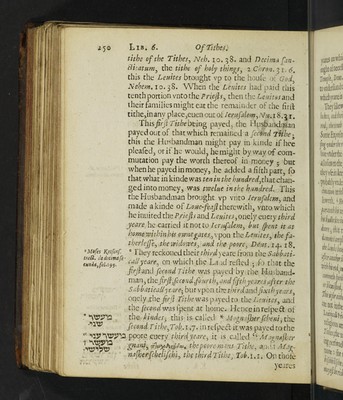 250 LIB. 6. Of Tithes.
tithe of the Tithes, Neh. 10. 38. and Decima san-
ctitatum, the tithe of holy things, 2 Chron. 31. 6.
this the Leuites brought vp to the house of God,
Nehem. 10. 38. When the Leuites had paid this
tenth portion vnto the Priests, then the Leuites and
their families might eat the remainder of the first
tithe, in any place, euen out of Ierusalem, Nu. 18. 31.
This first Tithe being payed, the Husbandman
payed out of that which remained a second Tithe,
this the Husbandman might pay in kinde if hee
pleased, or if he would, he might by way of com-
mutation pay the worth thereof in money; but
when he payed in money, he added a fift part, so
that what in kinde was ten in the hundred, that chan-
ged into money, was twelue in the hundred. This
the Husbandman brought vp vnto Ierusalem, and
made a kinde of Loue-feast therewith, vnto which
he inuited the Priests and Leuites, onely euery third
yeare he carried it not to Ierusalem, but spent it at
home within his owne gates, vpon the Leuites, the fa-
therlesse, the widowes, and the poore, Deut. 14. 18.
* They reckoned their third yeare from the Sabbati-
call yeare, on which the Land rested; so that the
first and second Tithe was payed by the Husband-
man, the first, second, fourth, and fifth yeares after the
Sabbaticall yeare, but vpon the third and sixth yeares,
onely the first Tithe was payed to the Leuites, and
the second was spent at home. Hence in respect of
the kindes, this is called * Magnasher scheni, the
second Tithe, Tob. 1. 7. in respect it was payed to the
poore euery third yeare, it is called
the poore mans Tithe,
the third Tithe, Tob. 1. 1. On those
yeares
* Moses Kotsens.
מעשר *
שני
מעשר עני
שלישי